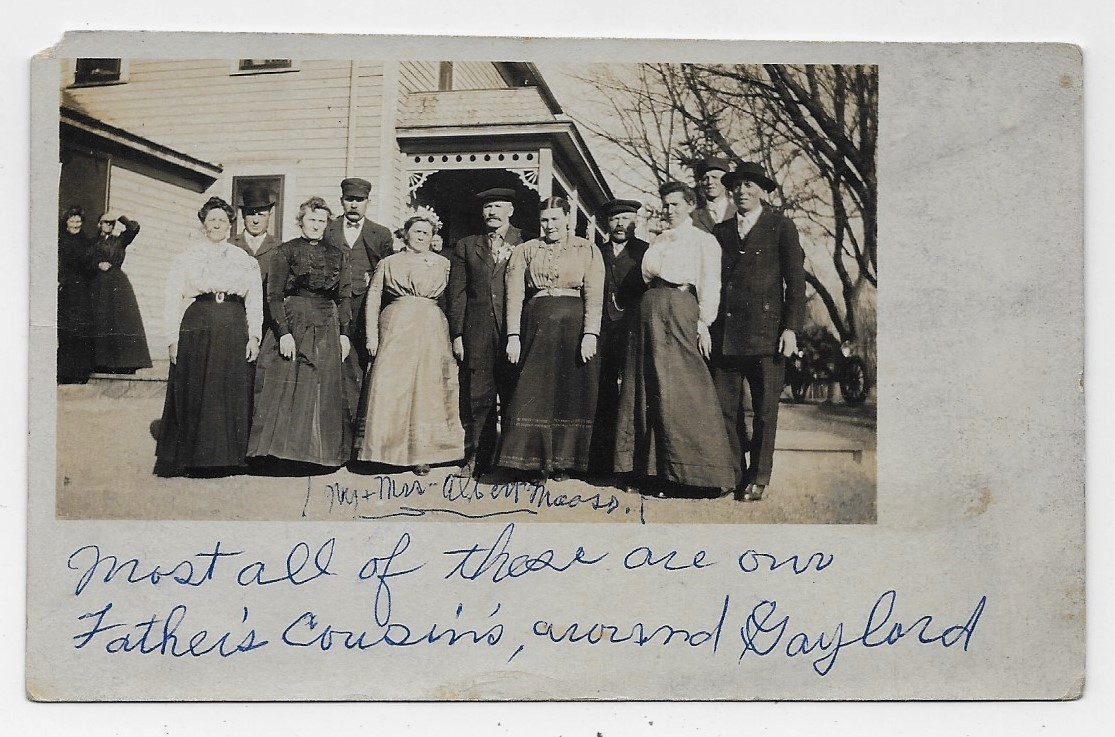 Mr + Mrs - Albert Maass.
Most all of these are our
Father's Cousin's, around Gaylord